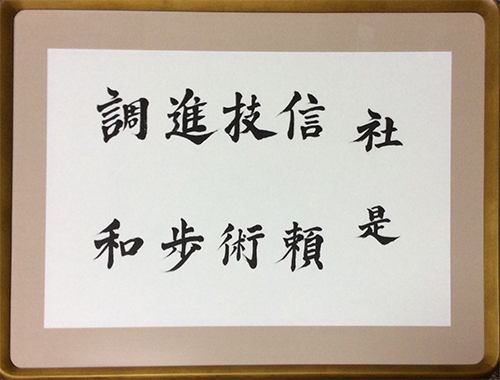 社是
信頼
技術
進歩
調和